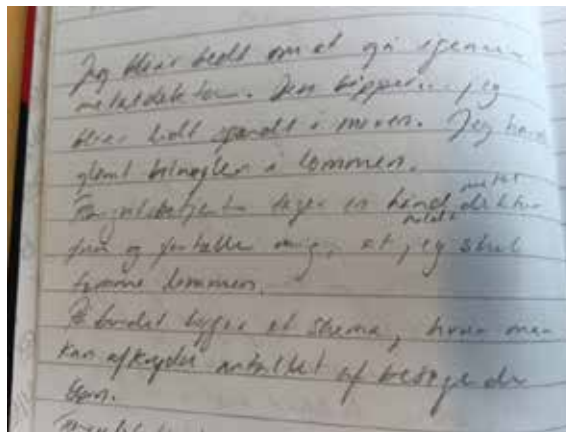 Jeg bliver bedt om at gå igennem
metaldektoren. Den bipper. jeg
bliver lidt i maven. Jeg havde
glemt bilnøglen i lommen.
Fængselsbetjenten tager en hånd metal
frem og fortæller mig, at jeg skal
tømme lommen.
På bordet ligger et skema, hvor man
kan afkrydse antallet af besøgende
børn.